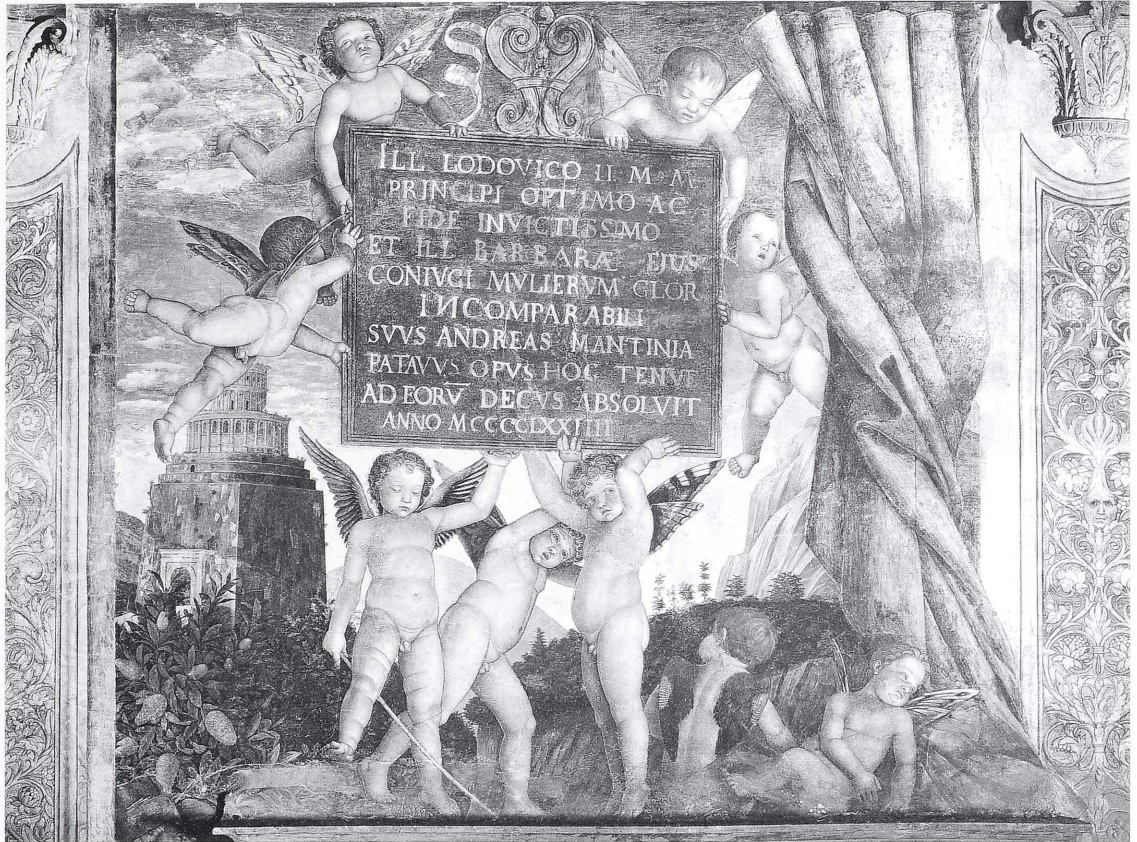 ILL LODOVICO II M M
PRINCIPI OPTIMO AC
FIDE INVICTISSIMO
ET ILL BARBARÆ EJUS
CONIVGI MVLIERVM GLOR
INCOMPARABILI
SVVS ANDREAS MANTINIA
PATAVVS OPVS HOC TENVE
AD EORV̅ DECVS ABSOLVIT
ANNO MCCCCLXXIIII